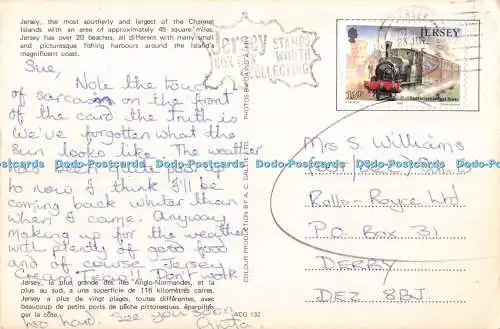 Jersey, the most southerly and largest of the Channel
Islands with an area of approximately 45 square miles.
Jersey has over 20 beaches, all different with many small
and picturesque fishing harbours around the Island's
magnificent coast.
Sue,
Note the touch
of sarcasm on the front
of the card the truth is
we've forgotten what the
sun looks like. The weather
has been quite
to now I think I'll be
coming back whiter than
when I came. Anyway
making up for the weather
with plenty of good food
and of course Jersey
Cream Teas!! Don't work
too hard. See you soon
Anita
Jersey, la plus grande des Iles Anglo-Normandes, et la
plus au sud, a une superficie de 116 kilomètres carrés.
Jersey a plus de vingt plages, toutes différentes, avec
beaucoup de petits ports de pêche pittoresques, éparpillés
par la côte.
PHOTOS BY DAVID A.
COLOUR PRODUCTION BY A. C. GALLIE LTD.
ACG 132
Jersey
STAMPS
WORTH
COLLECTING
JERSEY
Mrs S Williams
Rolls-Royce Ltd
P.O. Box 31
DERBY
DE2 8BJ
Dodo-Postcards Dodo-Postcards Dodo-Postcards Dodo-Postcards Dodo-Postcards Dodo-Postcards